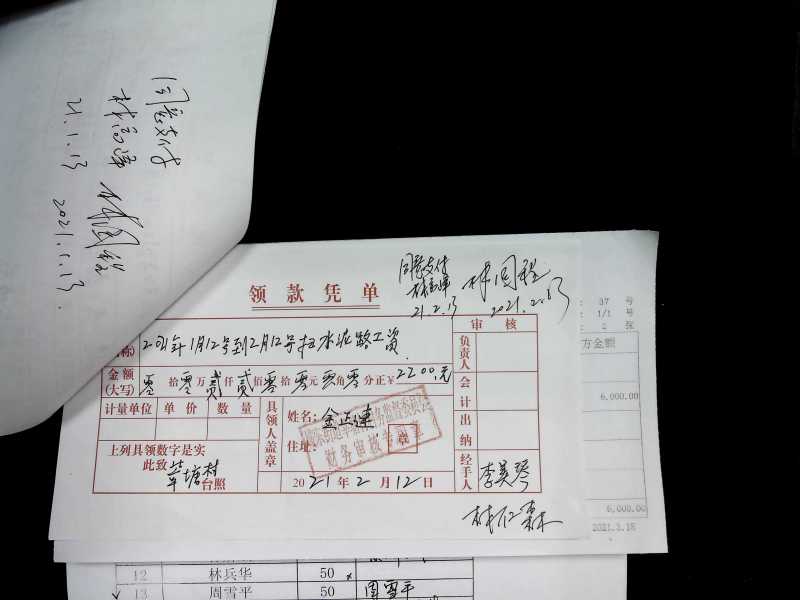 同意支付
21.1.13
2021.1.13.
领款凭单
同意支付
21.2.13
2021.2.13
称)
2021年1月12号到2月12号扫水泥路工资
审核
负责人
会计
出纳
经手人
李美琴
金额
(大写)
零拾零万贰仟贰佰零拾零元零角零分正¥2200.元
计量单位 单价 数量
具领人盖章
姓名:金正连
住址:
财务审核专用章
上列具领数字是实
此致
草塘村
台照
2021年2月12日
: 37 号
: 1/1 号
: 2 张
方金额
6,000.00
6,000.00
2021.3.18
12 林兵华 50
13 周雪平 50 周雪平